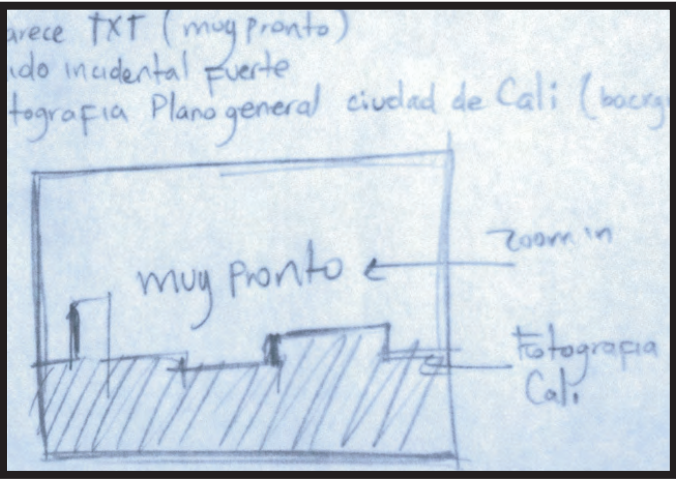 arece TXT (muy pronto)
ido incidental fuerte
tografia Plano general ciudad de Cali (backg
zoom in
muy pronto
Fotografia
Cali